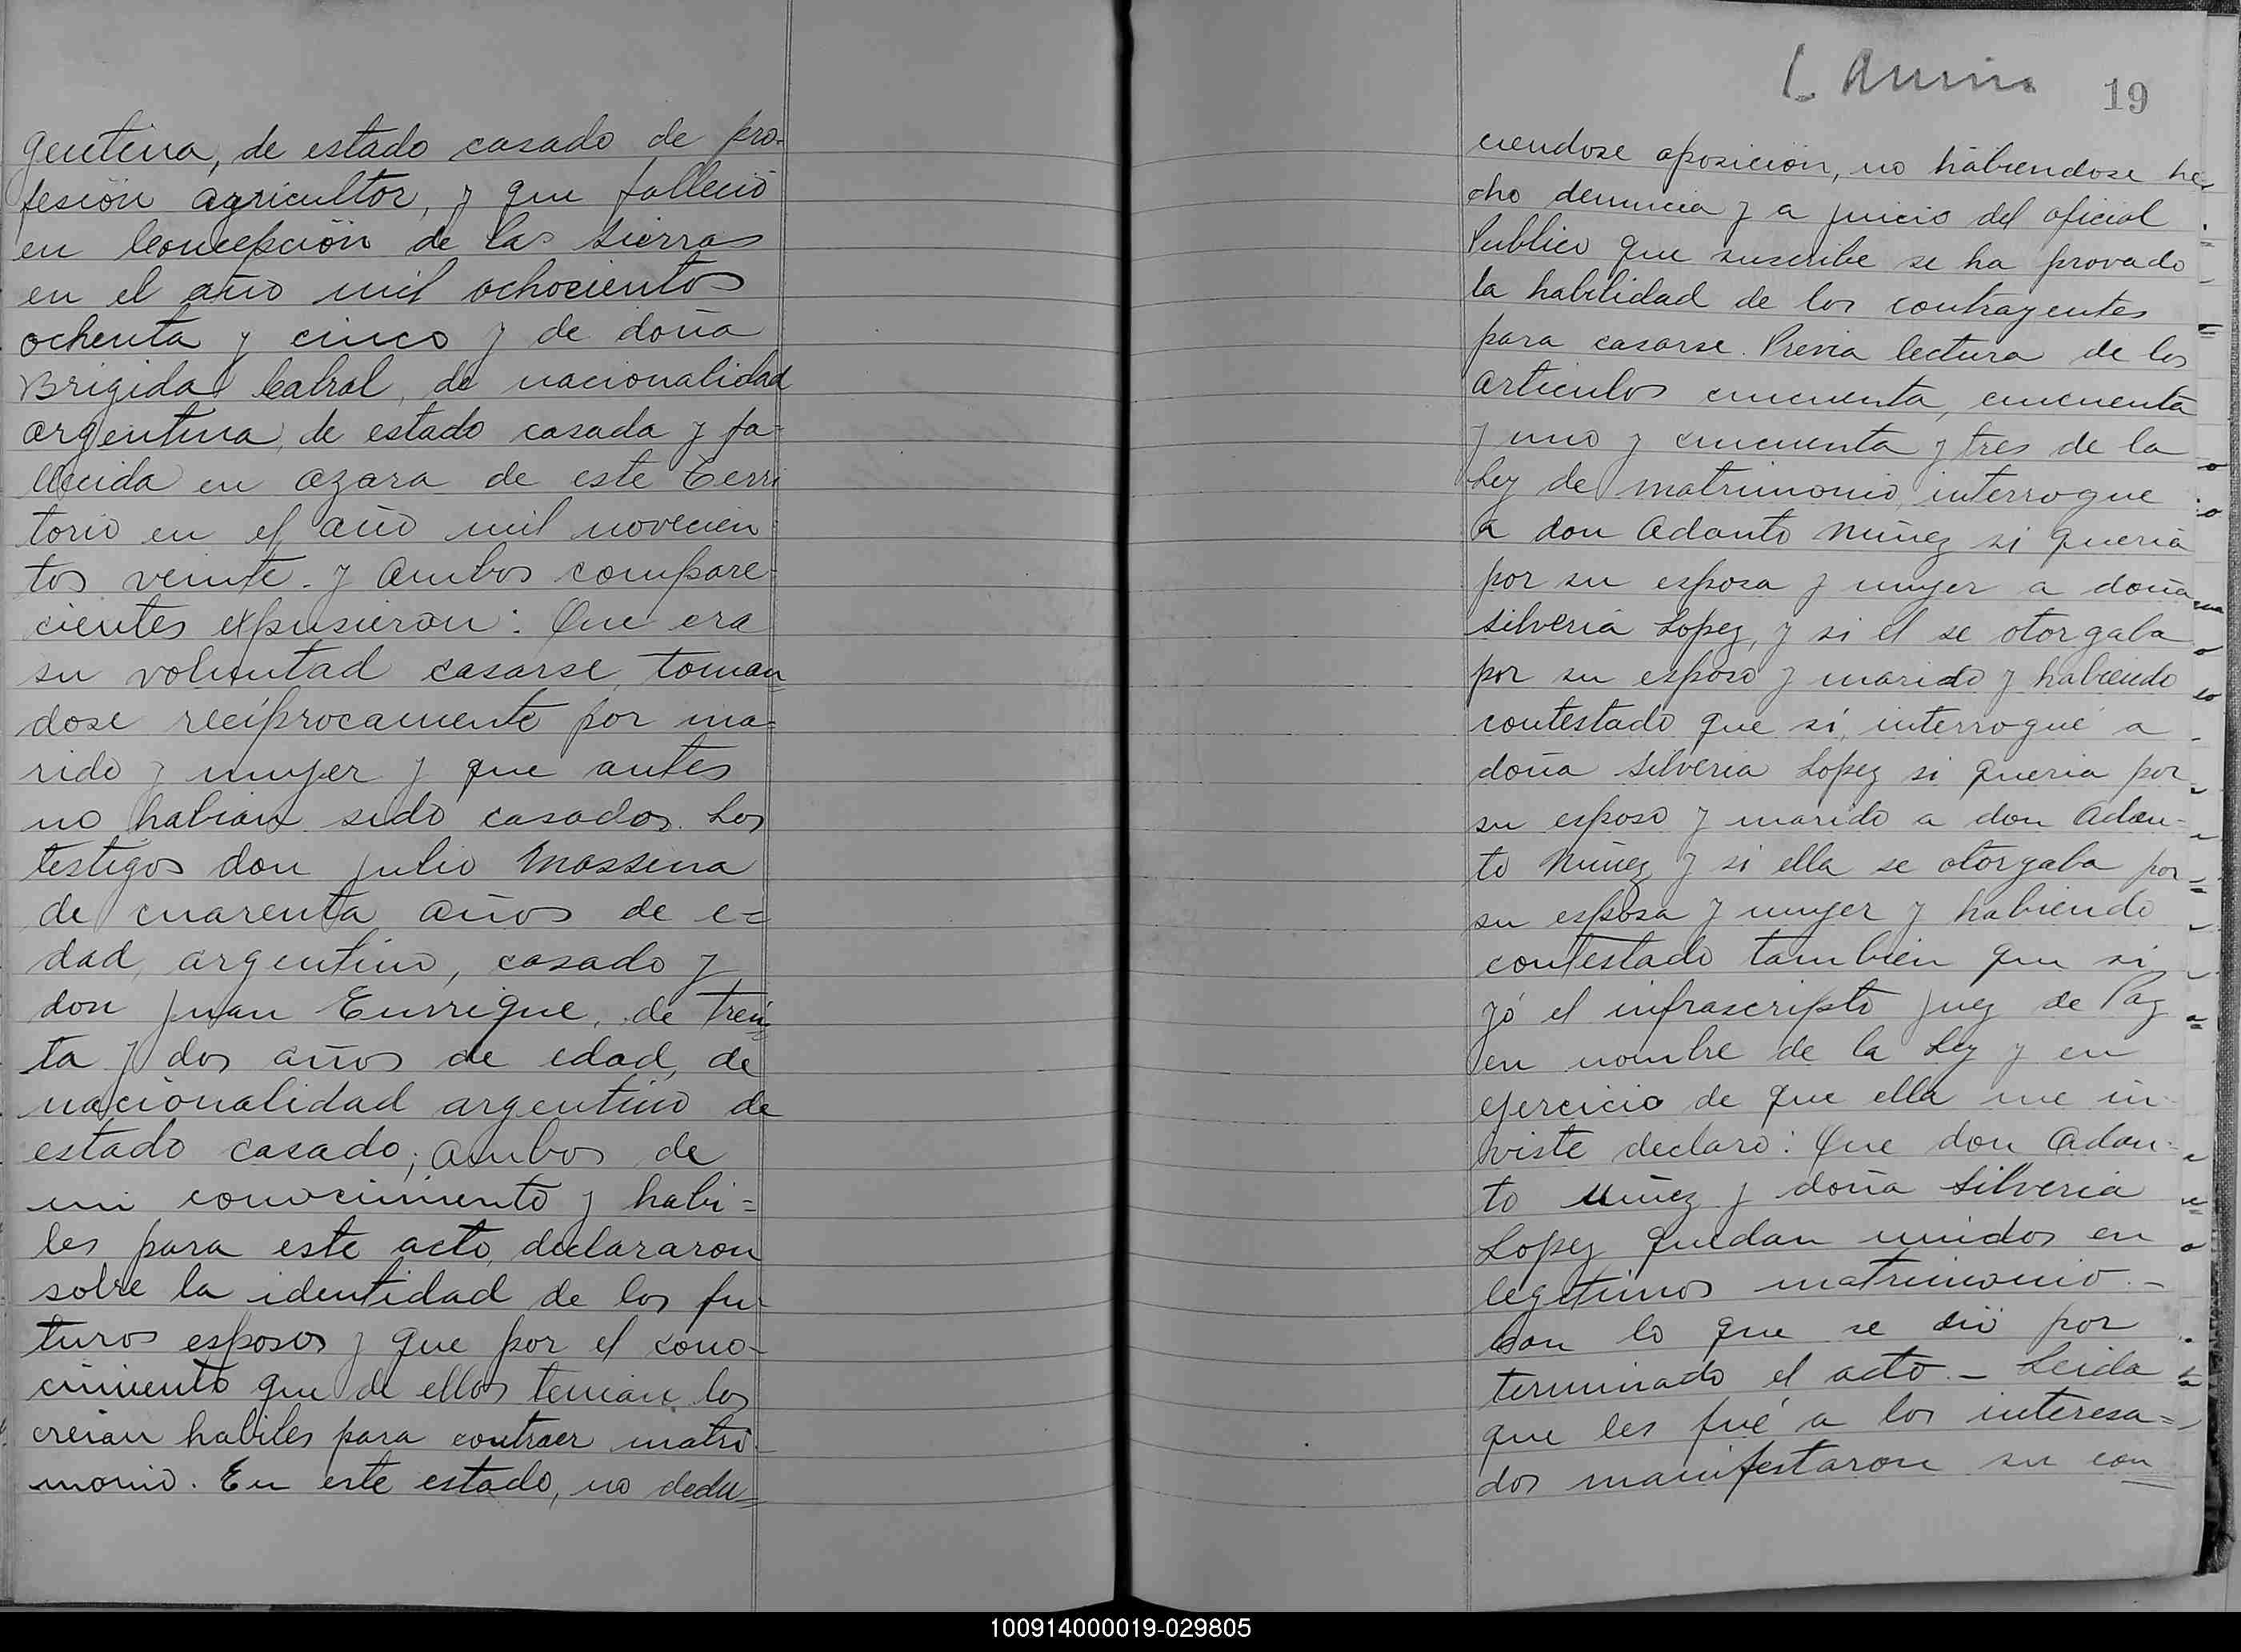 gentina, de estado casado de pro-
fesión agricultor, y que falleció
en Concepción de las Sierras
en el año mil ochocientos
ochenta y cinco y de doña
Brigida Cabral, de nacionalidad
argentina, de estado casada y fa-
llecida en Azara de este Terri
torio en el año mil novecien-
tos veinte. y Ambos compare-
cientes expusieron: Que era
su voluntad casarse, toman=
dose recíprocamente por ma=
rido y mujer y que antes
no habian sido casados. Los
testigos don Julio Massina
de cuarenta años de e=
dad, argentino, casado y
don Juan Enrrique, de trein=
ta y dos años de edad, de
nacionalidad argentino de
estado casado; Ambos de
mi conocimiento y habi=
les para este acto, declararon
sobre la identidad de los fu-
turos esposos y que por el cono-
cimiento que de ellos tenian los
creian habiles para contraer matri-
monio. En este estado, no dedu=
19
ciendose oposición, no habiendose he-
cho denuncia y a juicio del oficial
Publico que suscribe se ha provado
la habilidad de los contrayentes
para casarse. Previa lectura de los
articulos cincuenta, cincuenta
y uno y cincuenta y tres de la
Ley de matrimonio, interrogue
a don Adanto Nuñez si queria
por su esposa y mujer a doña
Silveria Lopez, y si el se otorgaba
por su esposo y marido y habiendo
contestado que si, interrogué a
doña Silveria Lopez si queria por
su esposo y marido a don Adan-
to Nuñez y si ella se otorgaba por
su esposa y mujer y habiendo
contestado tambien que si
yó el infrascripto Juez de Paz
en nombre de la Ley y en
ejercicio de que ella me in-
viste declaro: Que don Adan-
to Nuñez y doña Silveria
Lopez quedan unidos en
legitimos matrimonio.-
Con lo que se dió por
terminado el acto.- Leida
que les fué a los interesa=
dos manifestaron su con
100914000019-029805